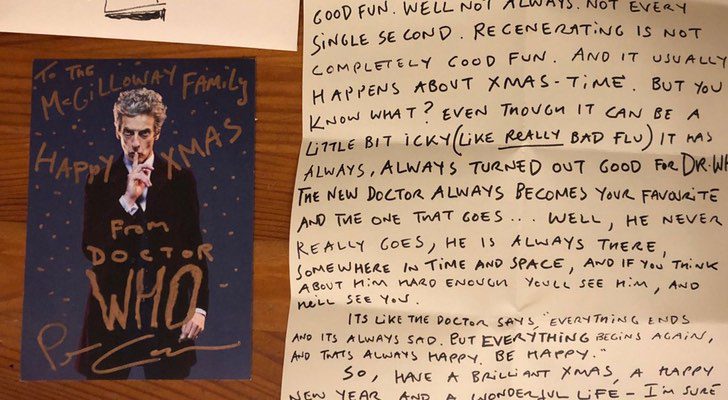 TO THE
McGILLOWAY FAMILY
HAPPY XMAS
From
DOCTOR
WHO
GOOD FUN. WELL NOT ALWAYS. NOT EVERY
SINGLE SECOND. REGENERATING IS NOT
COMPLETELY GOOD FUN. AND IT USUALLY
HAPPENS ABOUT XMAS-TIME. BUT YOU
KNOW WHAT? EVEN THOUGH IT CAN BE A
LITTLE BIT ICKY (LIKE REALLY BAD FLU) IT HAS
ALWAYS, ALWAYS TURNED OUT GOOD FOR DR. WH
THE NEW DOCTOR ALWAYS BECOMES YOUR FAVOURITE
AND THE ONE THAT GOES... WELL, HE NEVER
REALLY GOES, HE IS ALWAYS THERE,
SOMEWHERE IN TIME AND SPACE, AND IF YOU THINK
ABOUT HIM HARD ENOUGH YOULL SEE HIM, AND
HE'LL SEE YOU.
ITS LIKE THE DOCTOR SAYS, "EVERYTHING ENDS
AND ITS ALWAYS SAD. BUT EVERYTHING BEGINS AGAIN,
AND THATS ALWAYS HAPPY. BE HAPPY."
SO, HAVE A BRILLIANT XMAS, A HAPPY
NEW YEAR AND A WONDERFUL LIFE - I'M SURE